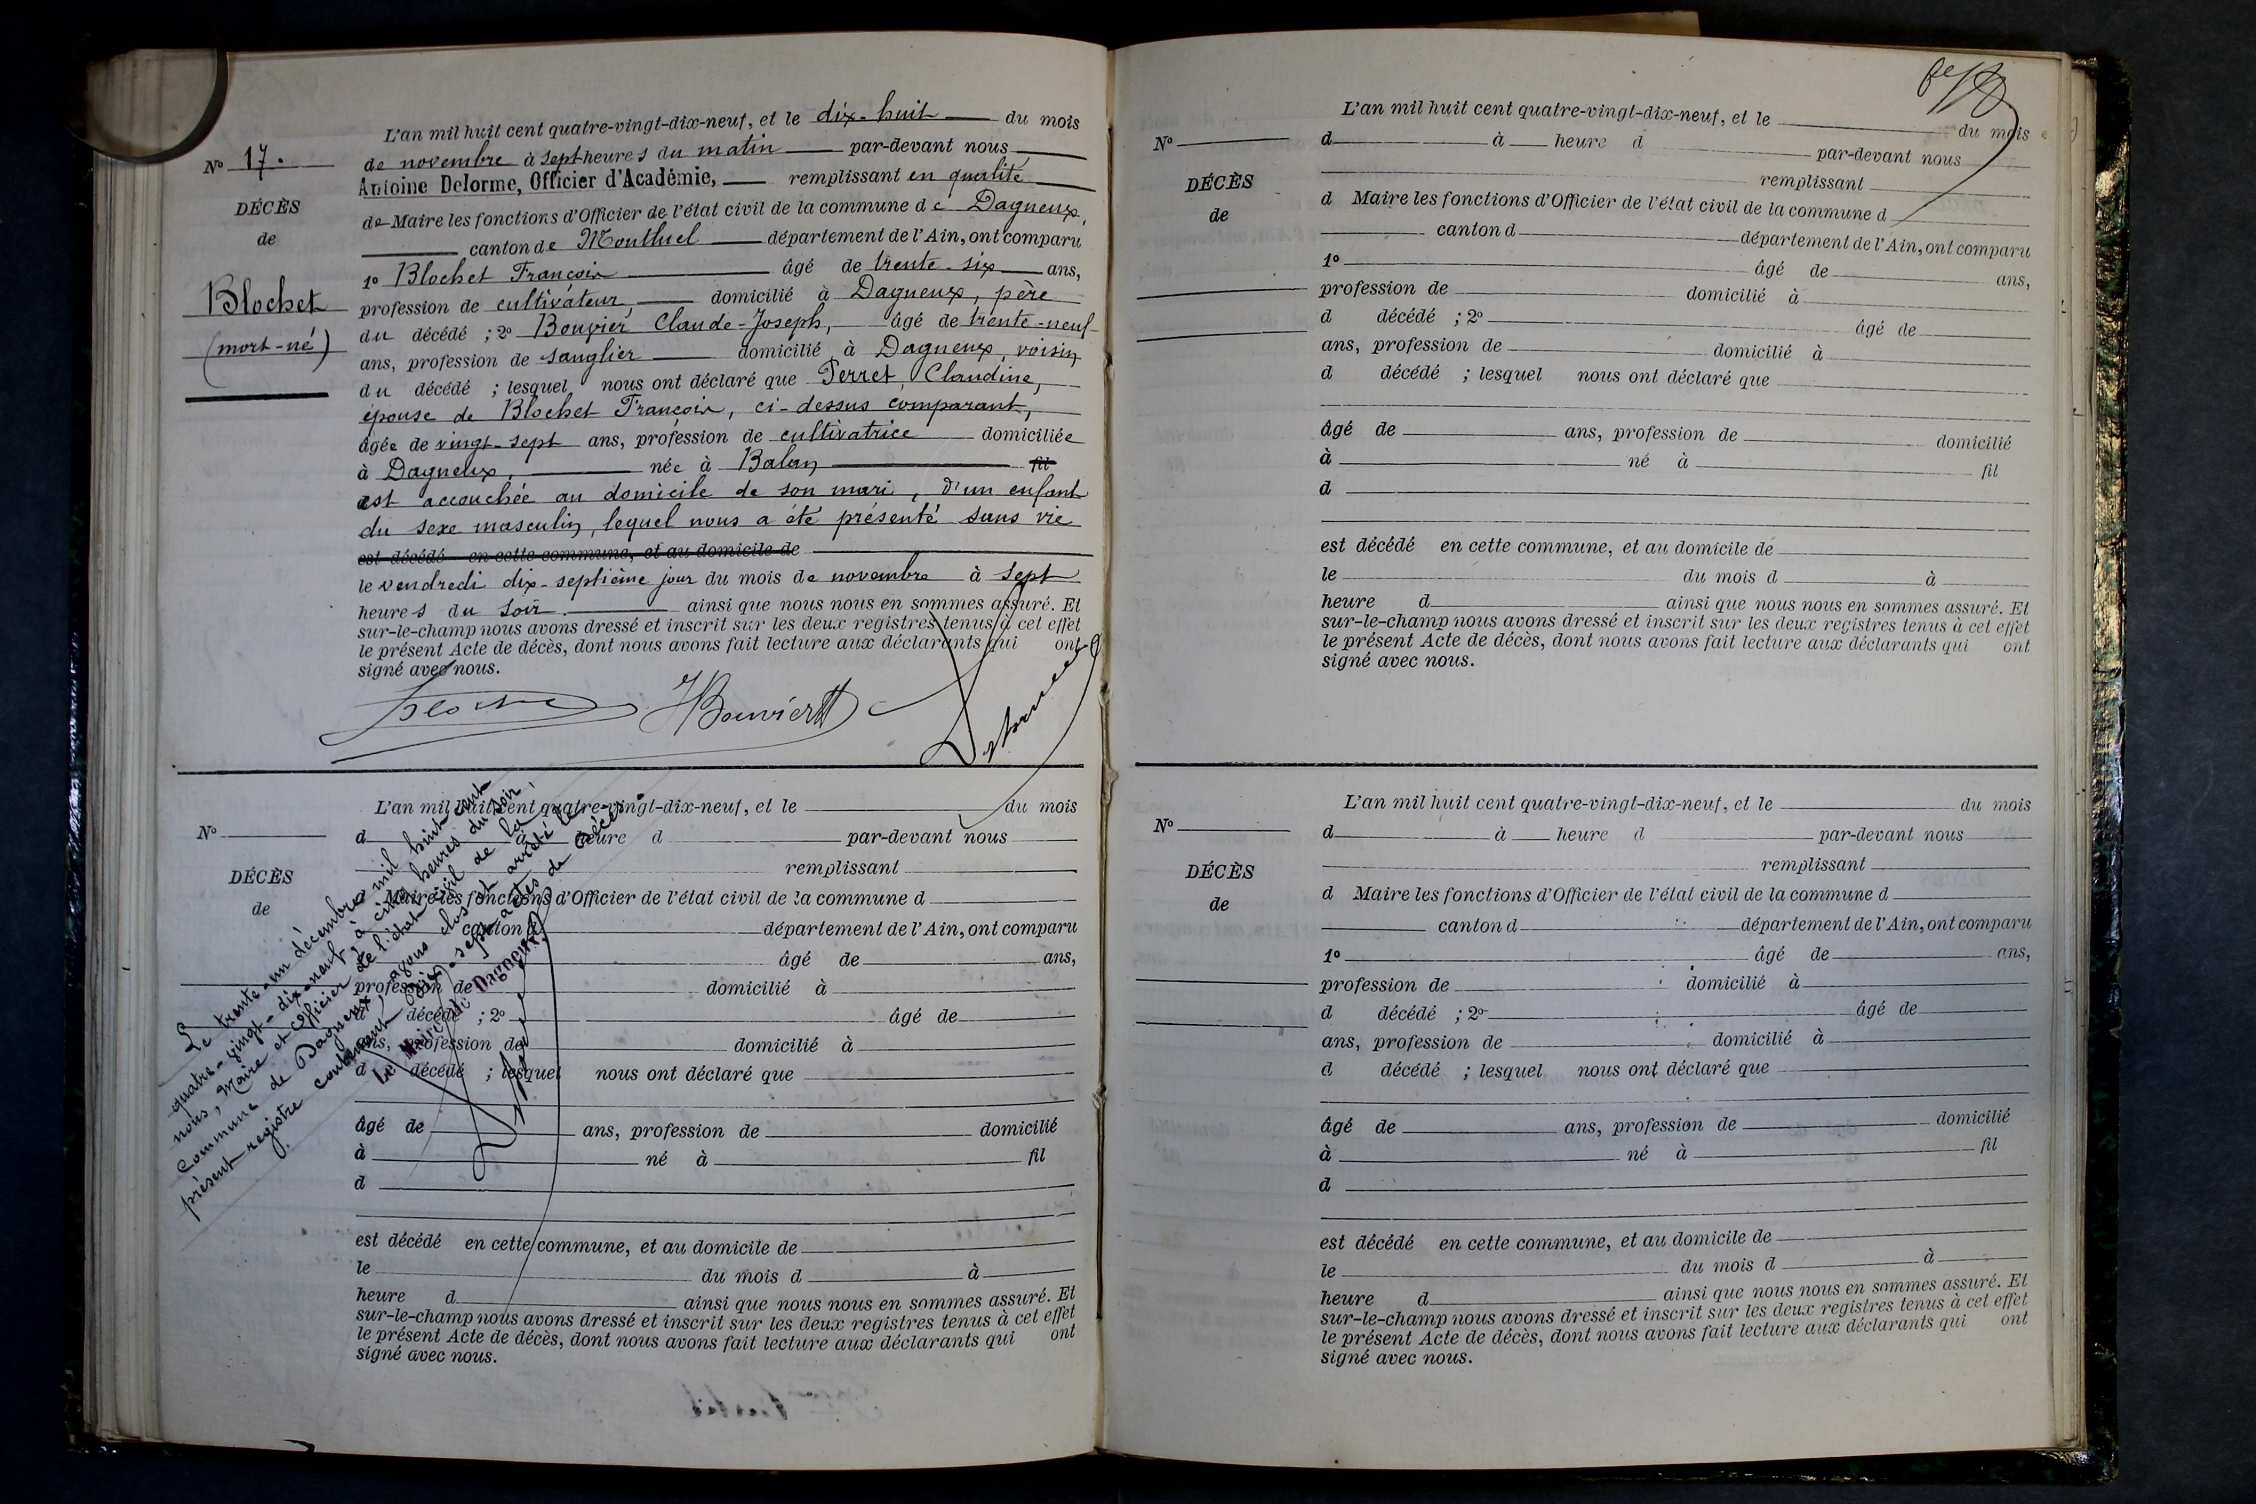 L'an mil huit cent quatre-vingt-dix-neuf, et le dix-huit du mois
No 17.
de novembre à sept heures du matin par-devant nous
Antoine Delorme, Officier d'Académie, remplissant en qualité
DÉCÈS
de Maire les fonctions d'Officier de l'état civil de la commune de Dagneux,
de
canton de Montluel département de l'Ain, ont comparu
1o Blochet François âgé de trente-six ans,
Blochet
profession de cultivateur, domicilié à Dagneux, père
du décédé ; 2o Bouvier Claude-Joseph, âgé de trente-neuf
(mort-né)
ans, profession de sanglier domicilié à Dagneux, voisin
du décédé ; lesquel nous ont déclaré que Perret, Claudine,
épouse de Blochet François, ci-dessus comparant,
âgée de vingt-sept ans, profession de cultivatrice domiciliée
à Dagneux, née à Balan fil
est accouchée au domicile de son mari, d'un enfant
du sexe masculin, lequel nous a été présenté sans vie
est décédé en cette commune, et au domicile de
le vendredi dix-septième jour du mois de novembre à sept
heures du soir. ainsi que nous nous en sommes assuré. Et
sur-le-champ nous avons dressé et inscrit sur les deux registres tenus à cet effet
le présent Acte de décès, dont nous avons fait lecture aux déclarants qui ont
signé avec nous.
Bouvier
L'an mil huit cent quatre-vingt-dix-neuf, et le du mois
No
d à heure d par-devant nous
remplissant
DÉCÈS
d Maire les fonctions d'Officier de l'état civil de la commune d
de
canton d département de l'Ain, ont comparu
âgé de ans,
profession de domicilié à
d décédé ; 2o âgé de
ans, profession de domicilié à
d décédé ; lesquel nous ont déclaré que
âgé de ans, profession de domicilié
à né à fil
d
est décédé en cette commune, et au domicile de
le du mois d à
heure d ainsi que nous nous en sommes assuré. Et
sur-le-champ nous avons dressé et inscrit sur les deux registres tenus à cet effet
le présent Acte de décès, dont nous avons fait lecture aux déclarants qui ont
signé avec nous.
Le trente-un décembre mil huit cent
quatre-vingt-dix-neuf à cinq heures du soir,
nous, Maire et officier de l'état civil de la
commune de Dagneux, avons clos et arrêté le
présent registre contenant dix-sept actes de décès.
Le Maire de Dagneux,
L'an mil huit cent quatre-vingt-dix-neuf, et le du mois
No
d à heure d par-devant nous
remplissant
DÉCÈS
d Maire les fonctions d'Officier de l'état civil de la commune d
de
canton d département de l'Ain, ont comparu
1o âgé de ans,
profession de domicilié à
d décédé ; 2o âgé de
ans, profession de domicilié à
d décédé ; lesquel nous ont déclaré que
âgé de ans, profession de domicilié
à né à fil
d
est décédé en cette commune, et au domicile de
le du mois d à
heure d ainsi que nous nous en sommes assuré. Et
sur-le-champ nous avons dressé et inscrit sur les deux registres tenus à cet effet
le présent Acte de décès, dont nous avons fait lecture aux déclarants qui ont
signé avec nous.
L'an mil huit cent quatre-vingt-dix-neuf, et le du mois
No
d à heure d par-devant nous
remplissant
DÉCÈS
d Maire les fonctions d'Officier de l'état civil de la commune d
de
canton d département de l'Ain, ont comparu
1o âgé de ans,
profession de domicilié à
d décédé ; 2o âgé de
ans, profession de domicilié à
d décédé ; lesquel nous ont déclaré que
âgé de ans, profession de domicilié
à né à fil
d
est décédé en cette commune, et au domicile de
le du mois d à
heure d ainsi que nous nous en sommes assuré. Et
sur-le-champ nous avons dressé et inscrit sur les deux registres tenus à cet effet
le présent Acte de décès, dont nous avons fait lecture aux déclarants qui ont
signé avec nous.